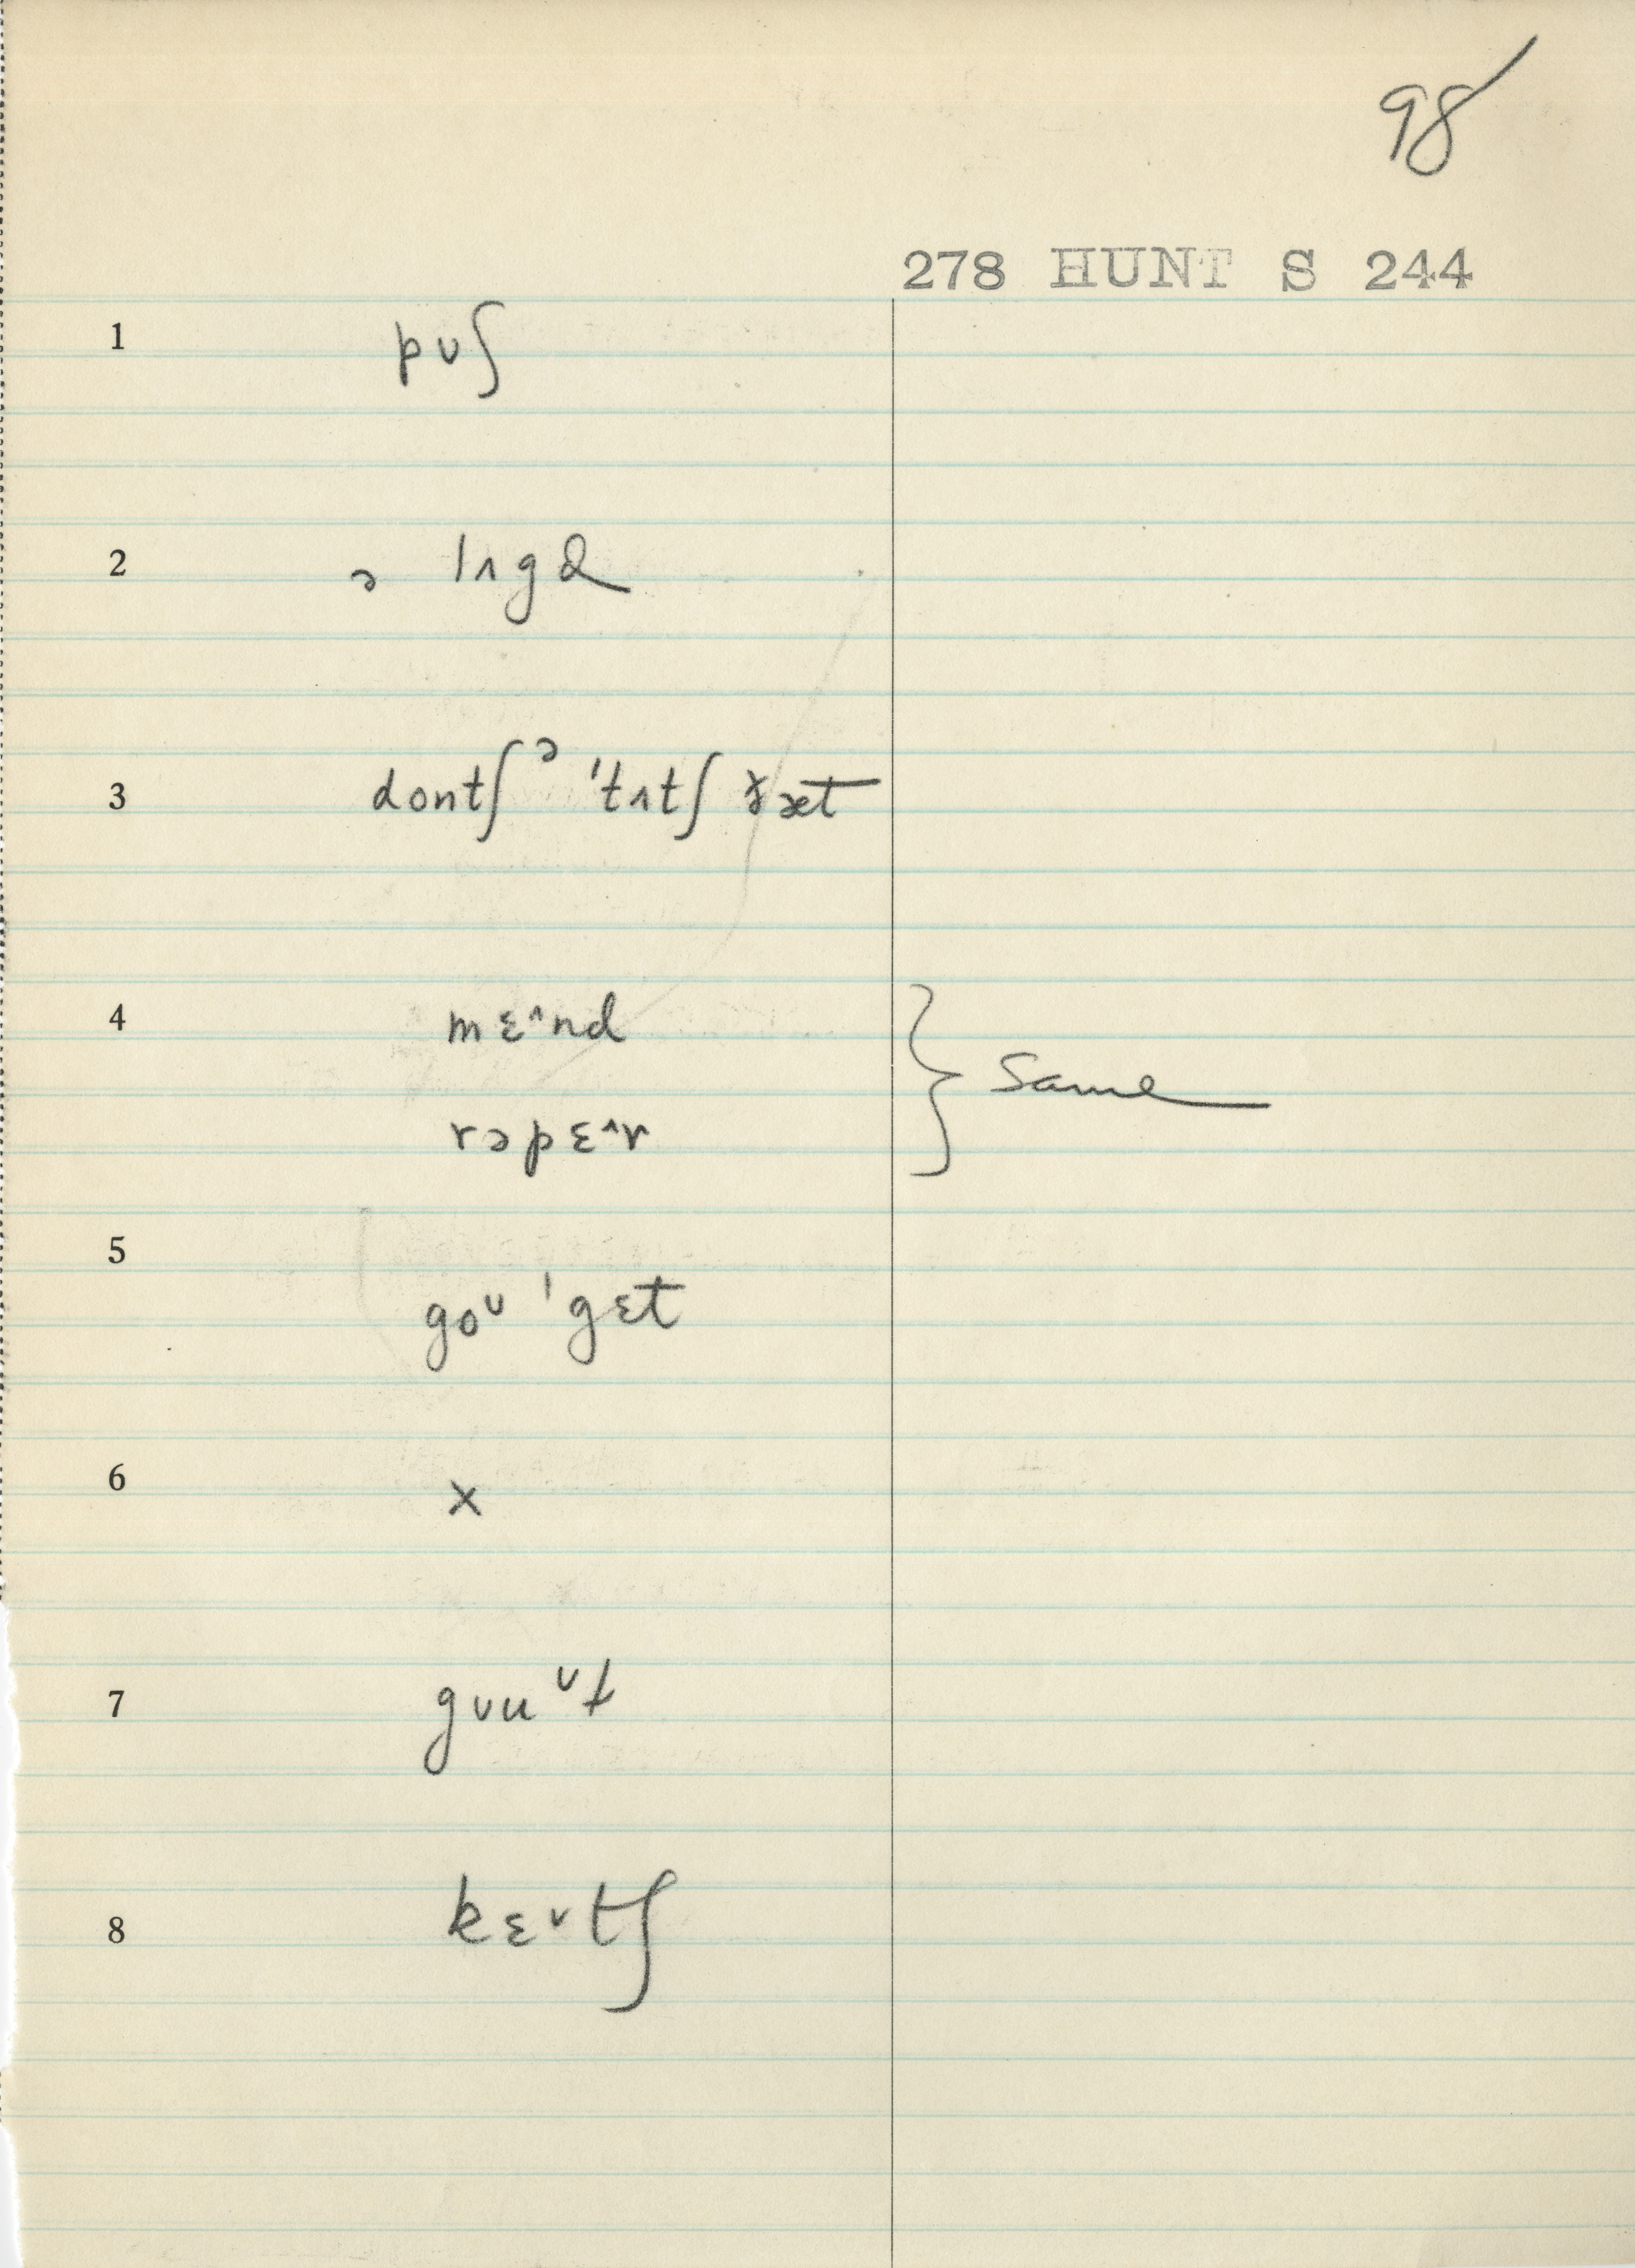 98
278 HUNT S 244
1 pʊʃ
2 ə lʌgəl
3 dontʃ ᵊ 'tʌtʃ ðæt
4 mɛ^nd
rəpɛ^r } Same
5 goᶷ 'gɛt
6 x
7 gʊuᶷt
8 kɛᵛtʃ